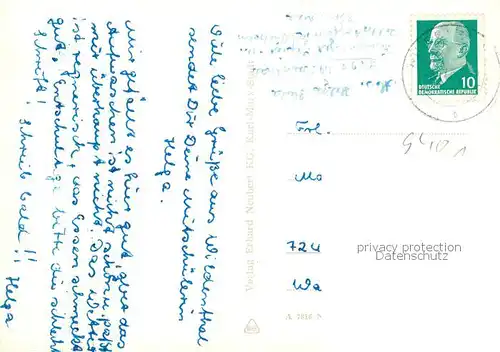 Viele liebe Grüße aus Wildenthal
sendet Dir Deine Mitschülerin
Helga.
Mir gefällt es hier gut, aber das
Aufwaschen ist nicht schön u. paßt
mir überhaupt nicht! Das Wetter
ist regnerisch, das Essen schmeckt
gut. Entschuldige bitte die schlechte
Schrift! Schreib bald!!
Helga
Verlag Erhard Neubert KG, Karl-Marx-Stadt
DEUTSCHE
DEMOKRATISCHE REPUBLIK
10
Frl.
Mo
724
Wa
privacy protection
Datenschutz